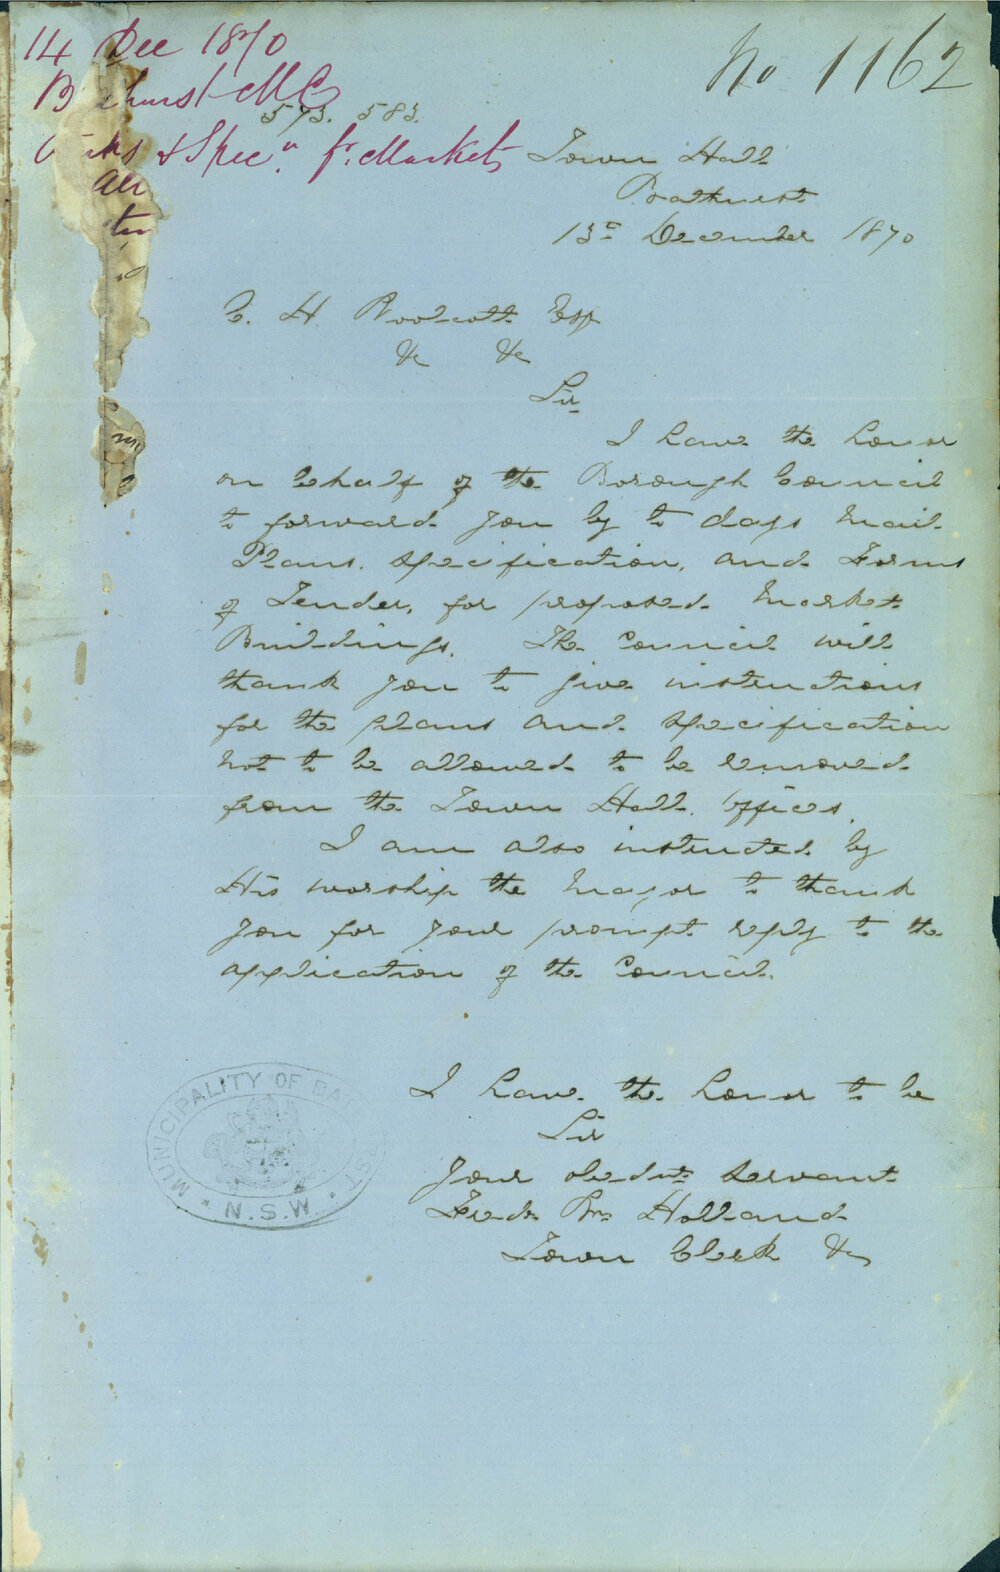 14 Dec 1870
No 1162
B hurst MC
573. 583.
& Specn. fr. Markets
Town Hall
Bathurst
13th December 1870
C. H. Woolcott Esq
&c &c
Sir
I have the honor
on behalf of the Borough Council
to forward you by to days Mail
Plans, Specification, and Forms
of Tender, for proposed Market
Buildings. The Council will
thank you to give instructions
for the plans and specification
not to be allowed to be removed
from the Town Hall Offices.
I am also instructed by
His worship the Mayor to thank
you for your prompt reply to the
application of the Council.
I have the honor to be
Sir
Your obednt Servant
Fredk Wm Holland
Town Clerk &c
MUNICIPALITY OF BA ST
N.S.W.